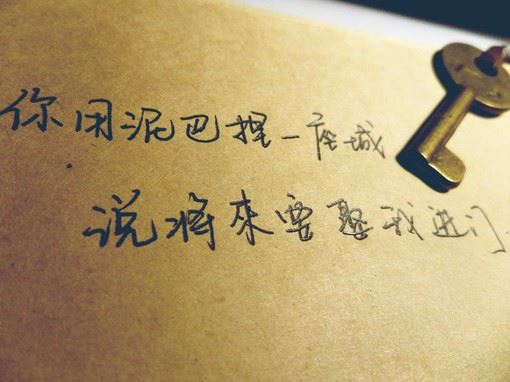 你用泥巴捏一座城
说将來要娶我进门